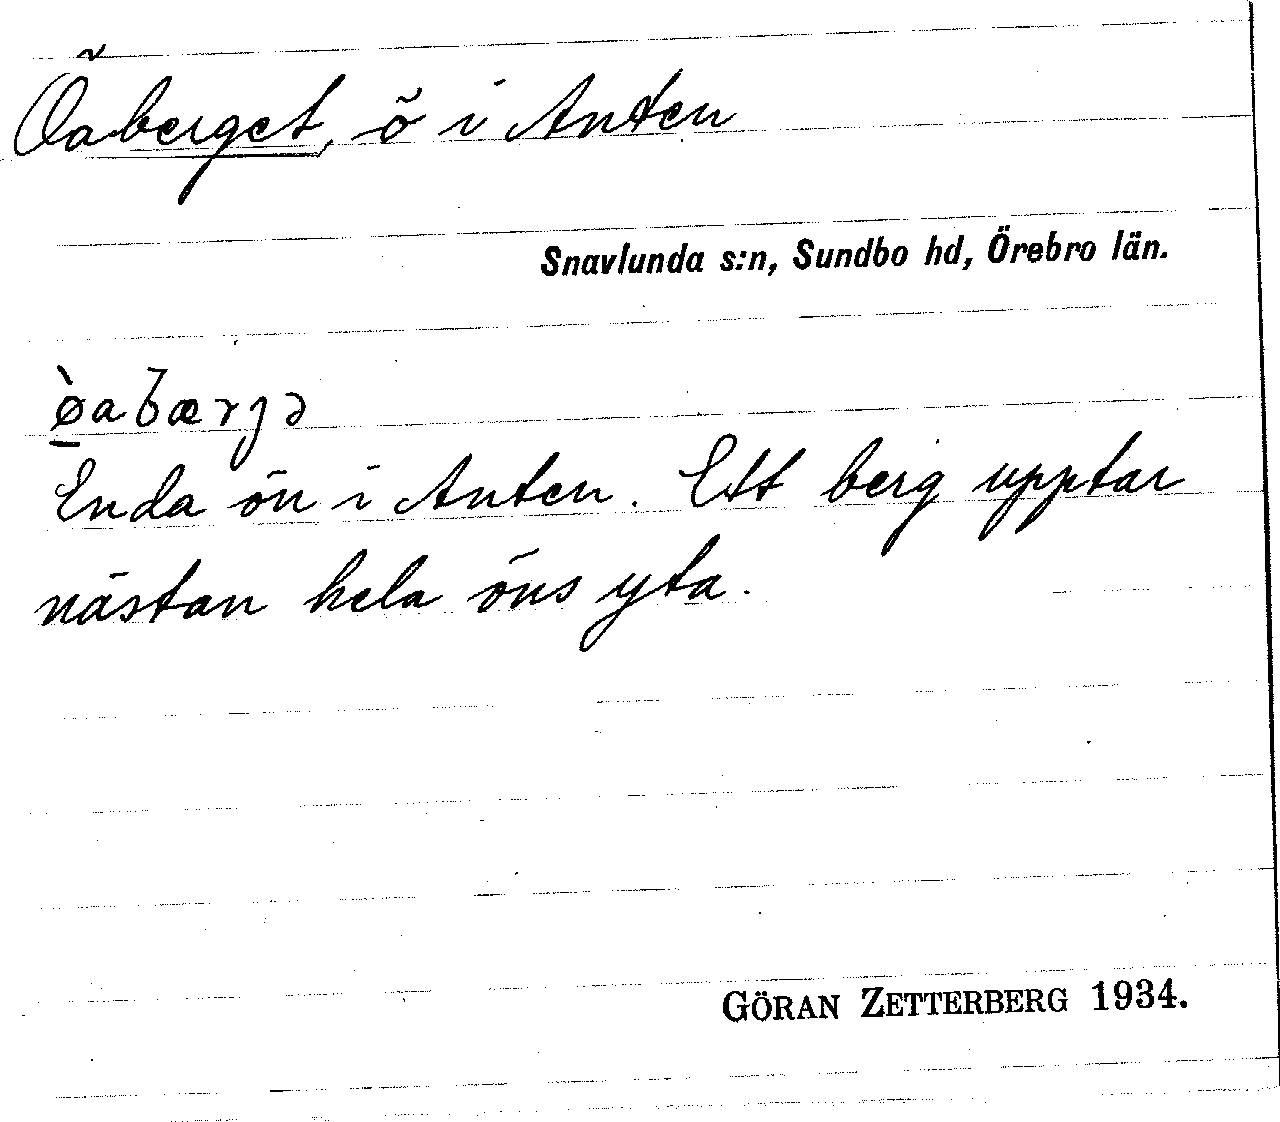 Öaberget, ö i Anten
Snavlunda s:n, Sundbo hd, Örebro län.
ø̠̀abærjə
Enda ön i Anten. Ett berg upptar
nästan hela öns yta.
GÖRAN ZETTERBERG 1934.